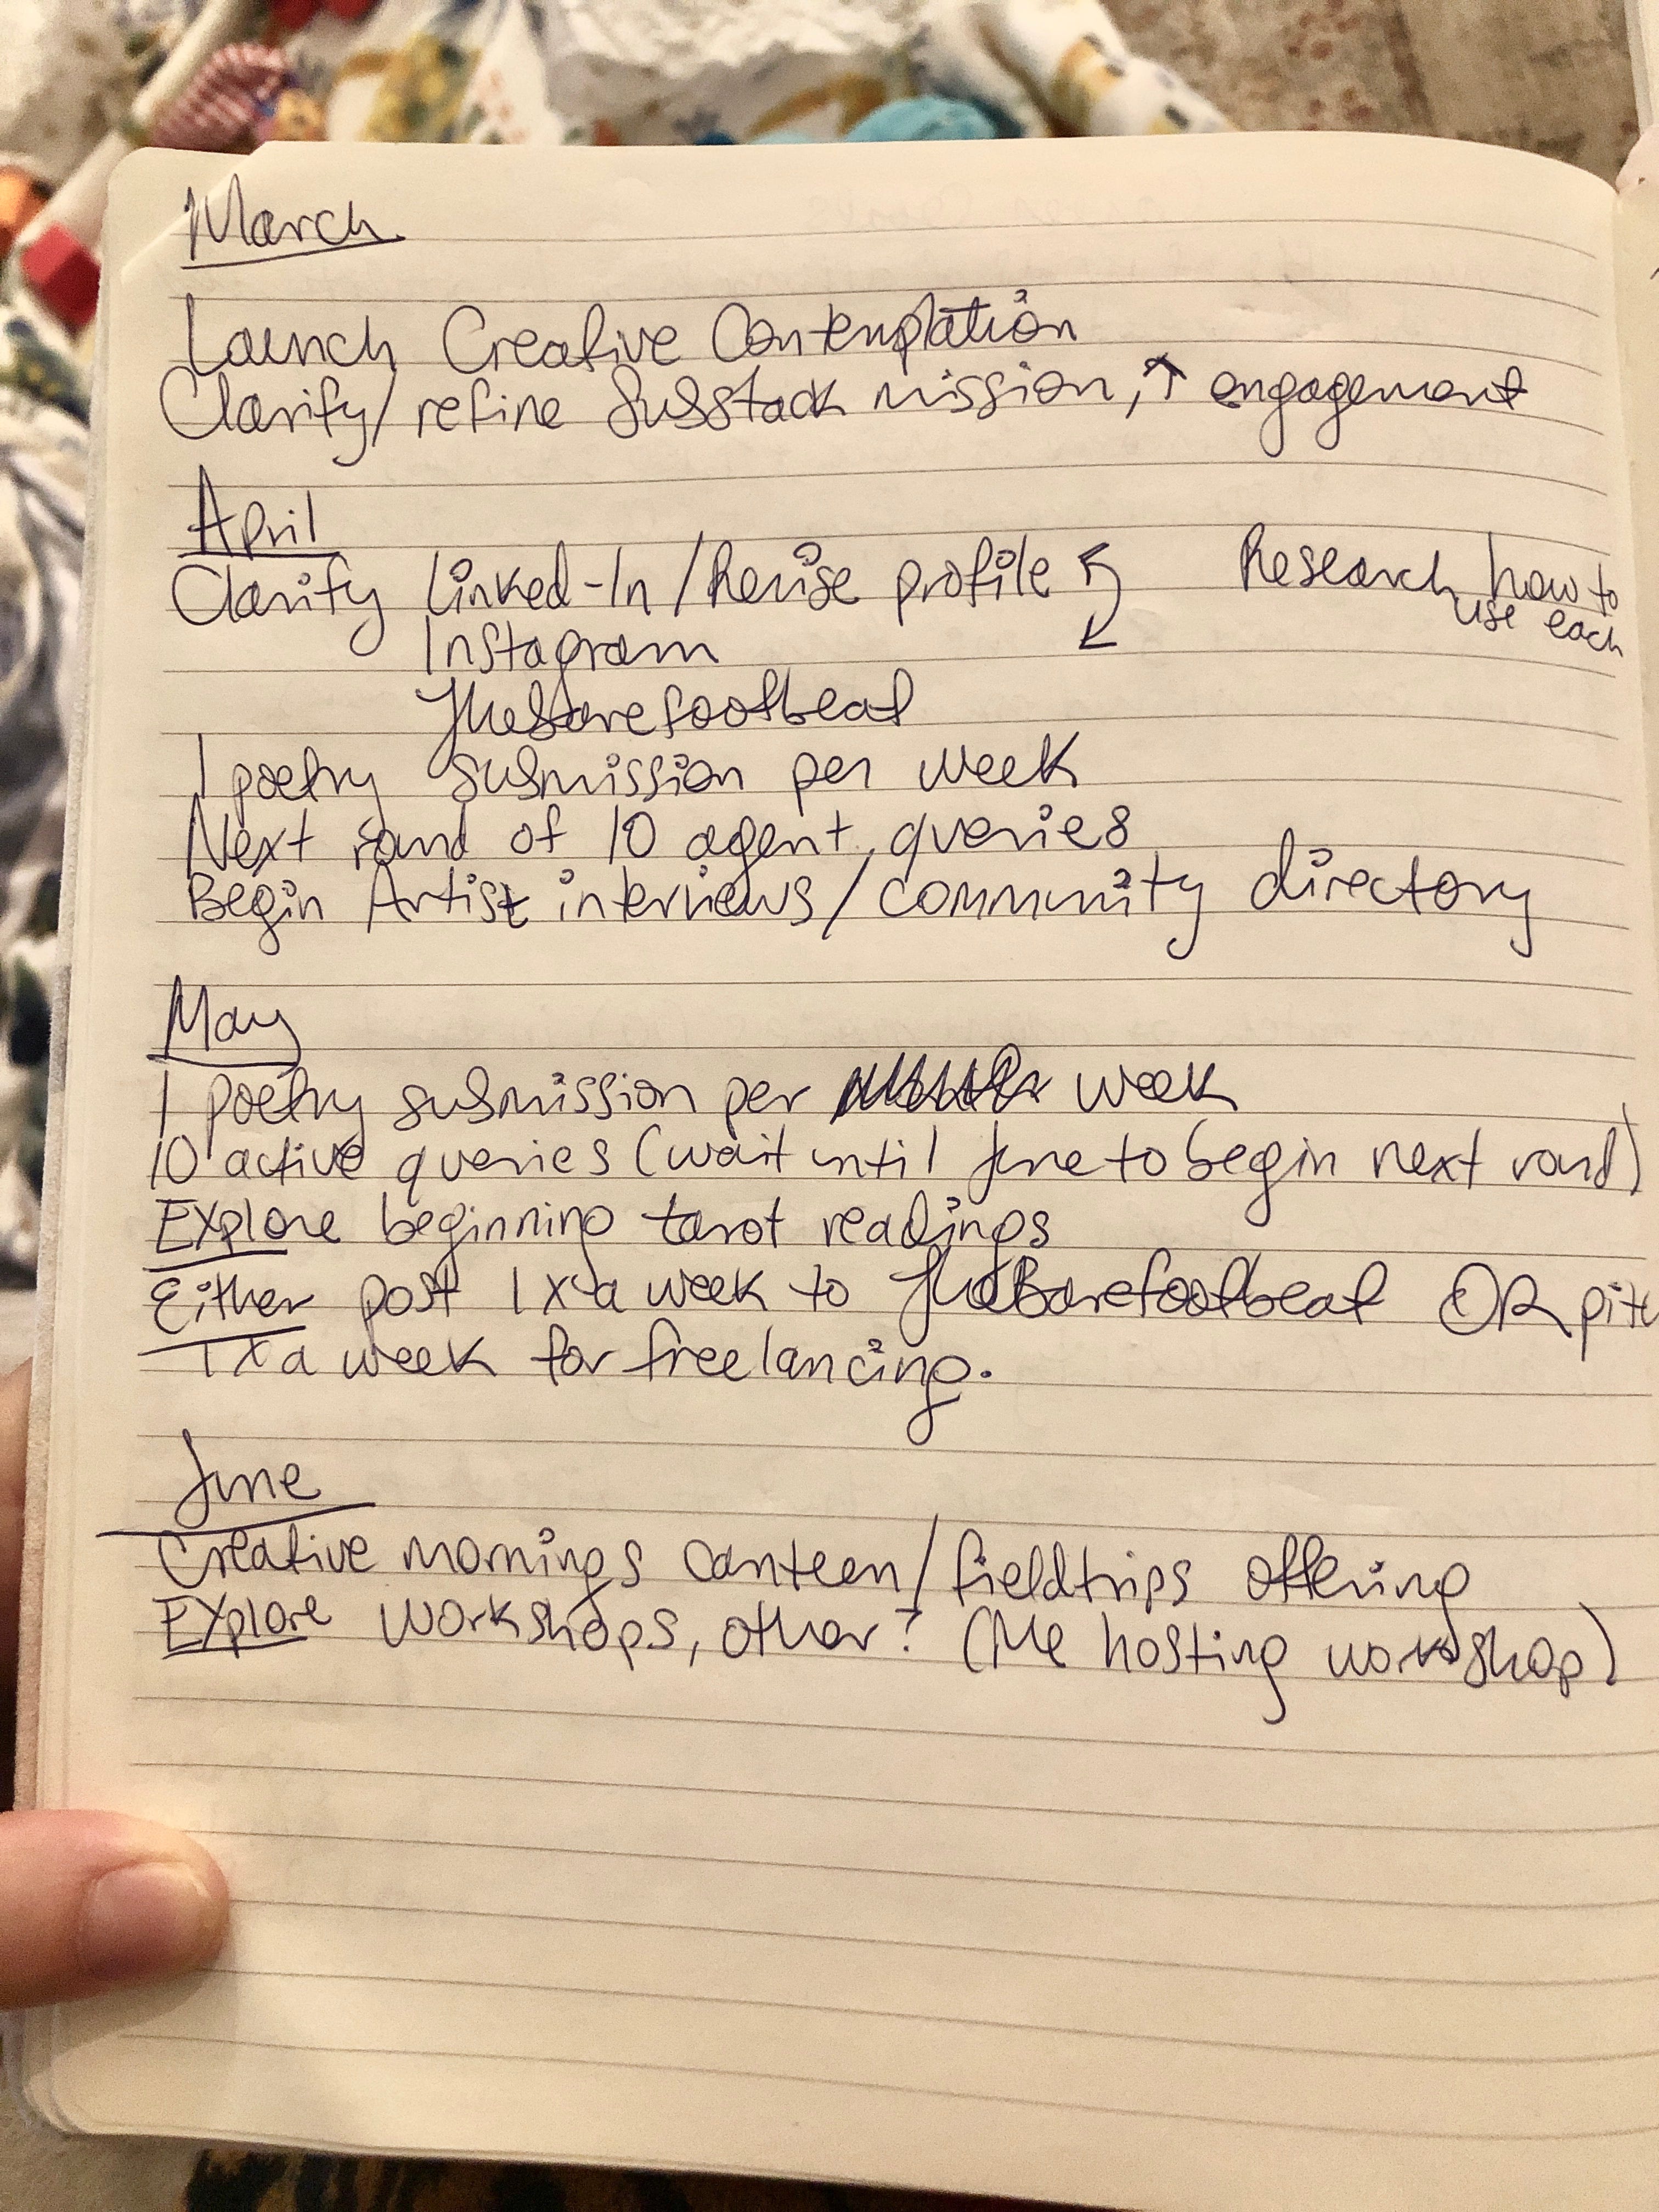 March
Launch Creative Contemplation
Clarify/refine Substack mission, ↑ engagement
April
Clarify Linked-In/Revise profile
Research how to
use each
Instagram
Thebarefootbeat
1 poetry submission per week
Next round of 10 agent queries
Begin Artist interviews/community directory
May
1 poetry submission per week
10 active queries (wait until June to begin next round)
Explore beginning tarot readings
Either post 1x a week to TheBarefootbeat OR pitc
1x a week for freelancing.
June
Creative mornings canteen/fieldtrips offering
Explore workshops, other? (Me hosting workshop)